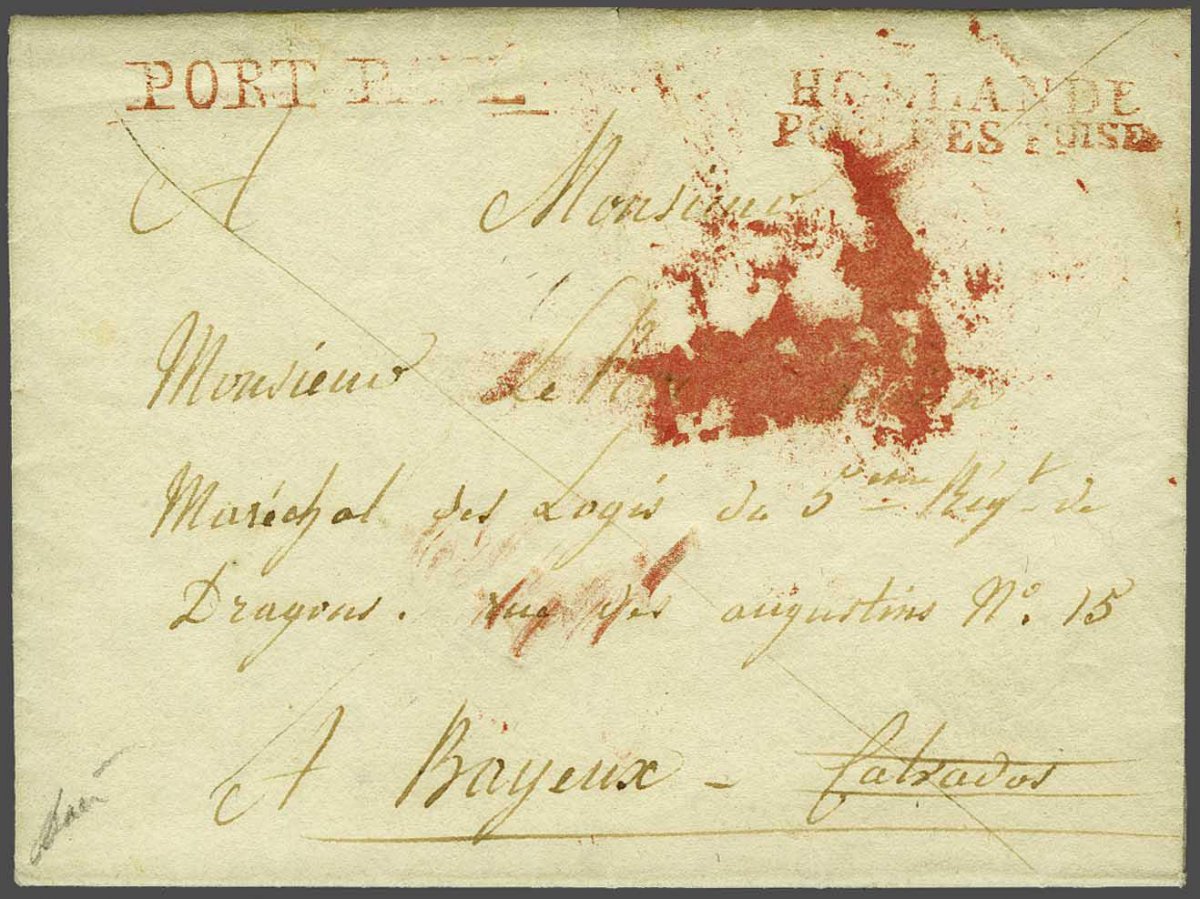 PORT PAYÉ
HOLLANDE
PAR PONTOISE
A Monsieur
Monsieur Le
Maréchal des Logis du 5eme Régt de
Dragons. rue des augustins No. 15
A Bayeux - Calvados